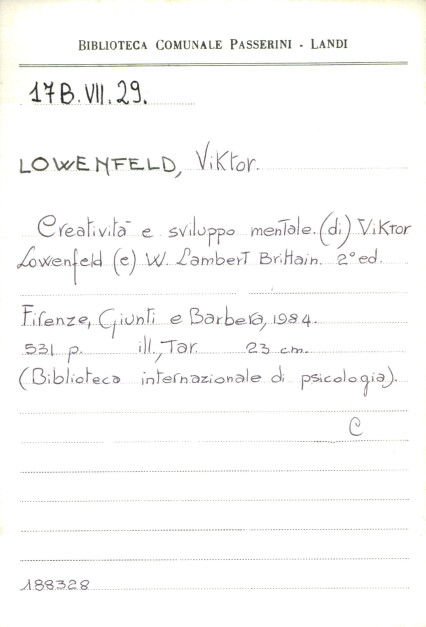 BIBLIOTECA COMUNALE PASSERINI - LANDI
17B.VII.29.
LOWENFELD, Viktor.
Creatività e sviluppo mentale. (di) Viktor
Lowenfeld (e) W. Lambert Brittain. 2° ed.
Firenze, Giunti e Barbera, 1984.
531 p. ill., Tav. 23 cm.
(Biblioteca internazionale di psicologia).
C
188328